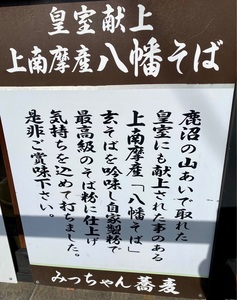 皇室献上
上南摩産八幡そば
鹿沼の山あいで取れた
皇室にも献上された事のある
上南摩産「八幡そば」
玄そばを吟味し自家製粉で
最高級のそば粉に仕上げ
気持ちを込めて打ちました。
是非ご賞味下さい。
みっちゃん蕎麦